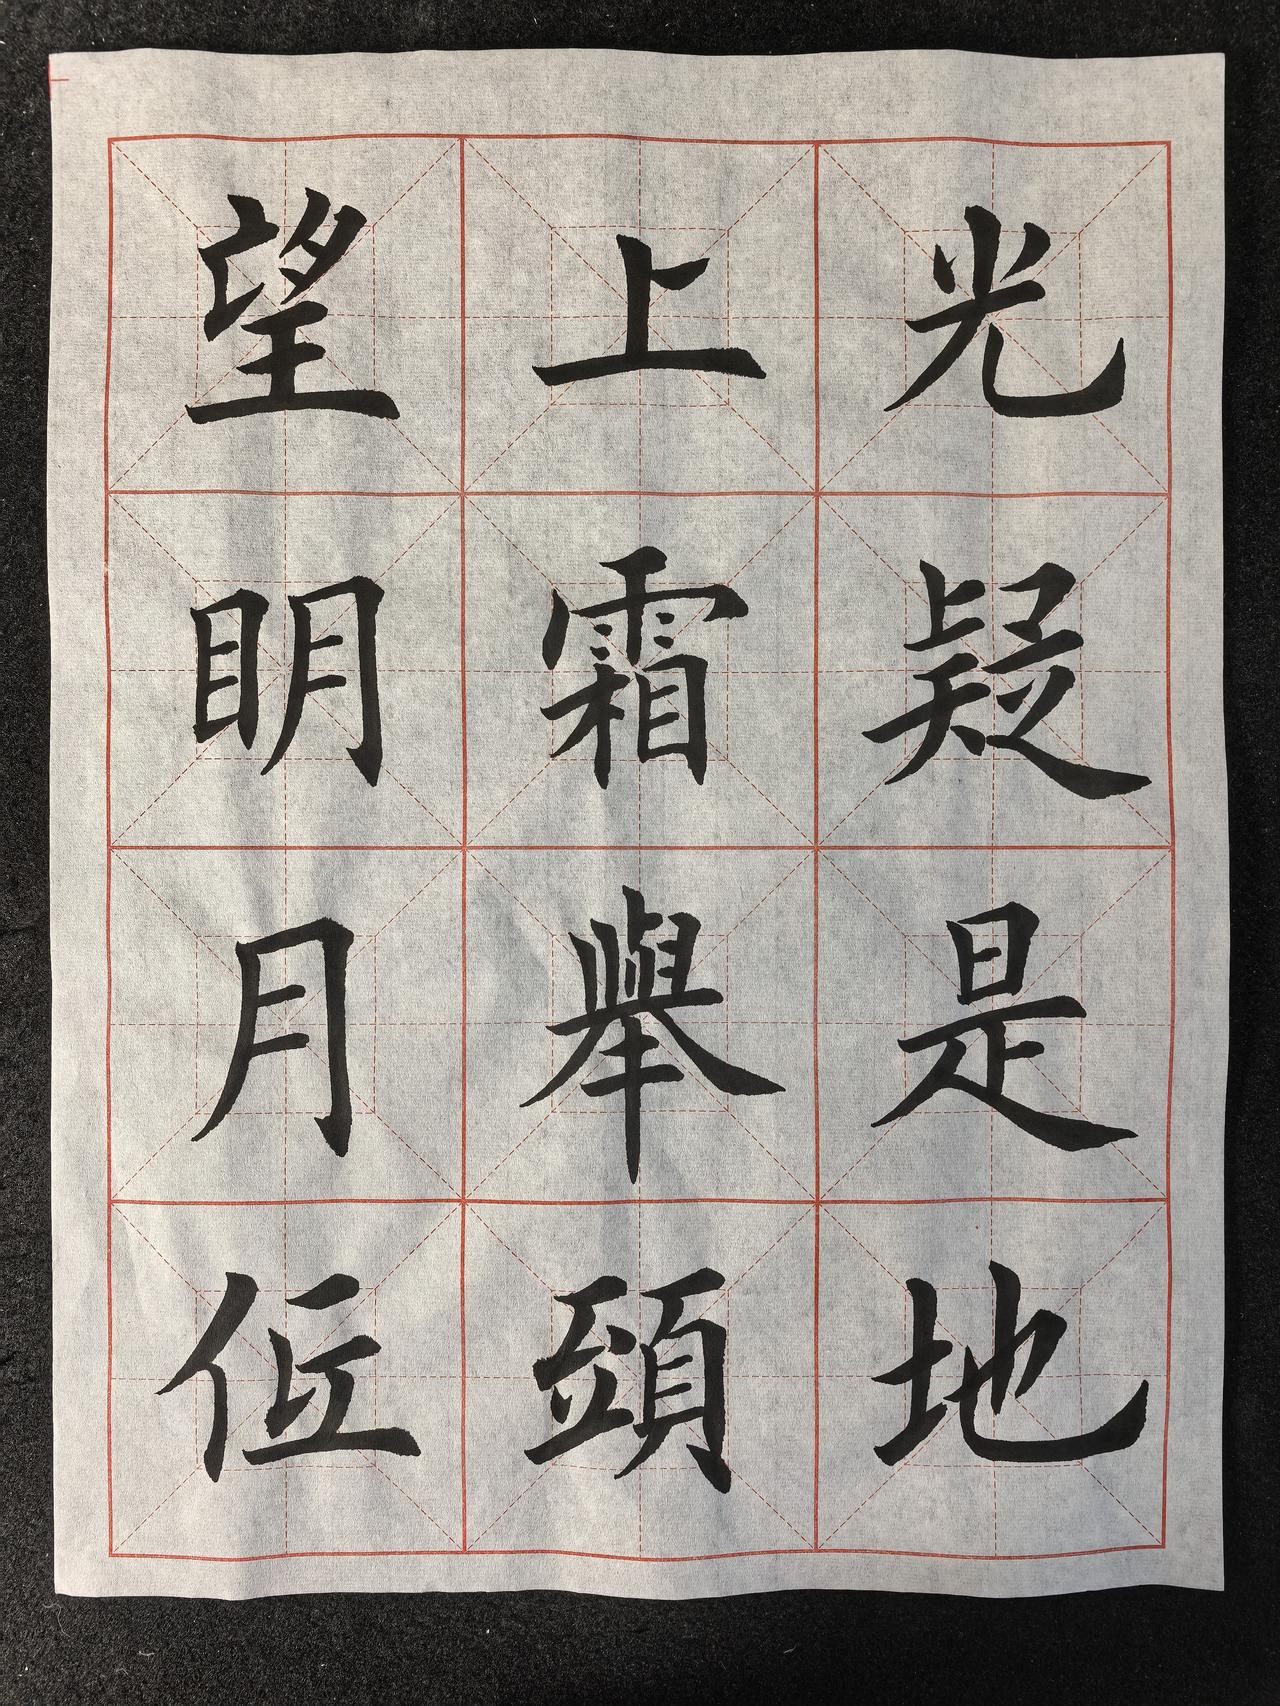 光疑是地
上霜舉頭
望明月低